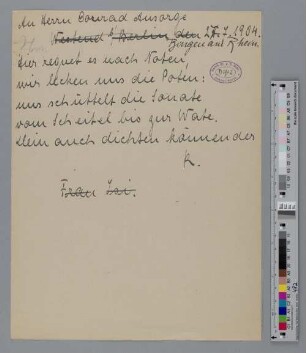 An Herrn Conrad Ansorge
Westend b/ Berlin den 27.7.1904.
Bingen am Rhein.
Hier regnet es nach Noten,
wir lecken uns die Poten:
uns schüttelt die Sonate
vom Scheitel bis zur Wate.
dein auch dichten könnender
R.
Frau Isi.